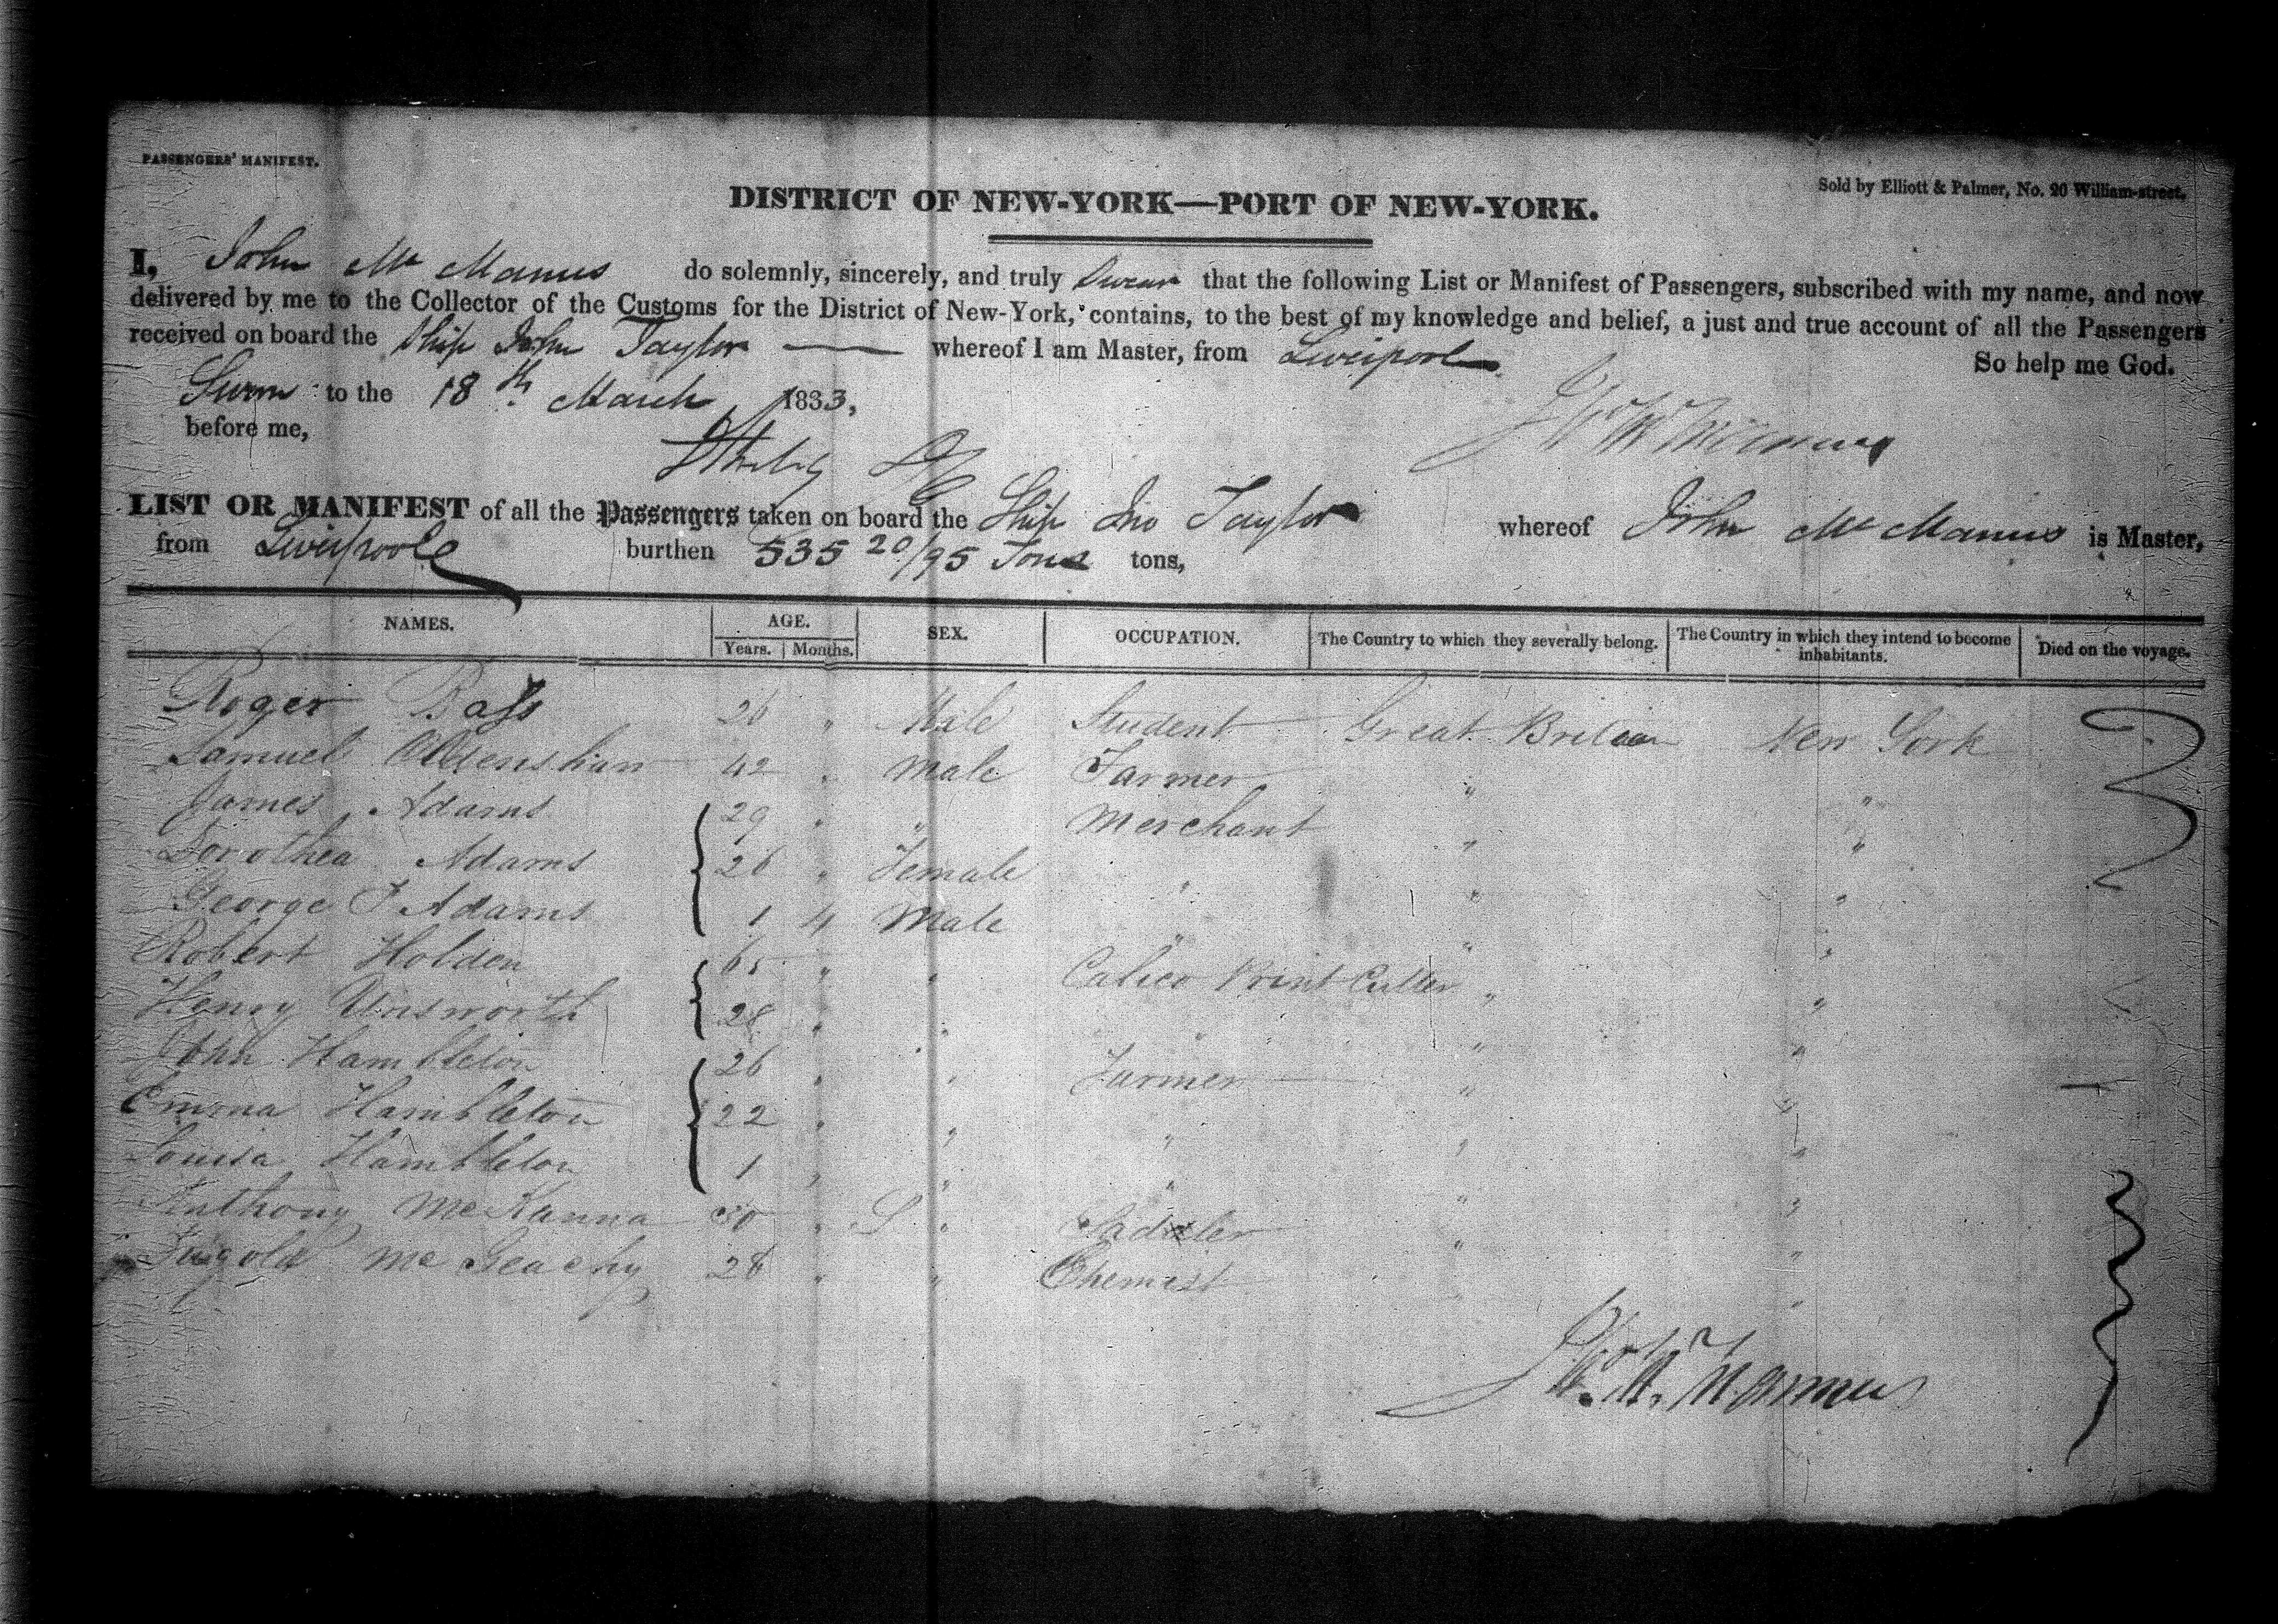 PASSENGERS' MANIFEST.
Sold by Elliott & Palmer, No. 20 William-street.
DISTRICT OF NEW-YORK—PORT OF NEW-YORK.
I, John Mc Manus do solemnly, sincerely, and truly Swear that the following List or Manifest of Passengers, subscribed with my name, and now
delivered by me to the Collector of the Customs for the District of New-York, contains, to the best of my knowledge and belief, a just and true account of all the Passengers
received on board the Ship John Taylor — whereof I am Master, from Liverpool
So help me God.
Sworn to the 18th March 1833,
before me,
LIST OR MANIFEST of all the Passengers taken on board the Ship Jno Taylor whereof John Mc Manus is Master,
from Liverpool burthen 535 20/95 Tons tons,
NAMES. AGE. SEX. OCCUPATION. The Country to which they severally belong. The Country in which they intend to become inhabitants. Died on the voyage.
Years. Months.
Roger Bass 26 " Male Student Great Britain New York
Samuel 42 " Male Farmer " "
James Adams 29 " " Merchant " "
Dorothea Adams 26 " Female " " "
George J Adams 1 4 Male " " "
Robert Holden 65 " " Calico Print Cutter " "
Henry Unsworth 28 " " " " "
John Hambleton 26 " " Farmer " "
Emma Hambleton 22 " " " " "
Louisa Hambleton 1 " " " " "
Anthony McKanna 30 " " Sadler " "
Mc Geachy 28 " " Chemist " "